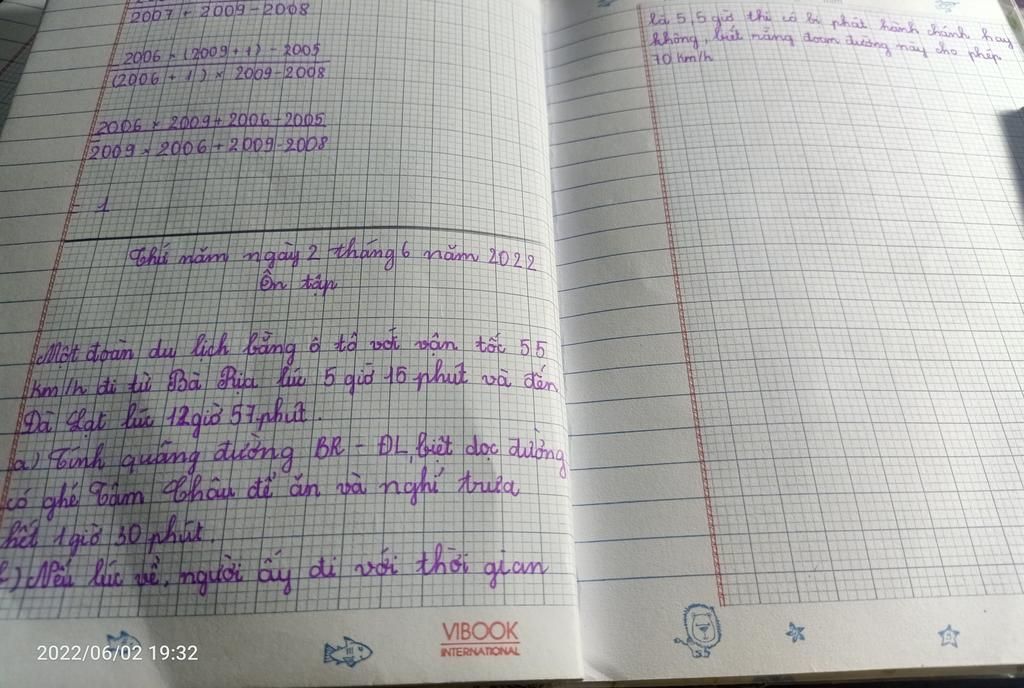 2007 + 2009 - 2008
2006 × (2009 + 1) - 2005
(2006 + 1) × 2009 - 2008
2006 × 2009 + 2006 - 2005
2009 × 2006 + 2009 - 2008
1
Thứ năm ngày 2 tháng 6 năm 2022
Ôn tập
Một đoàn du lịch bằng ô tô với vận tốc 55
km/h đi từ Bà Rịa lúc 5 giờ 15 phút và đến
Đà Lạt lúc 12 giờ 57 phút.
a) Tính quãng đường BR - ĐL, biết dọc đường
có ghé Tâm Châu để ăn và nghỉ trưa
hết 1 giờ 30 phút.
b) Nếu lúc về, người ấy đi với thời gian
là 5,5 giờ thì có bị phát hành chánh hay
không, biết rằng đoạn đường này cho phép
70 km/h
VIBOOK
INTERNATIONAL
2022/06/02 19:32